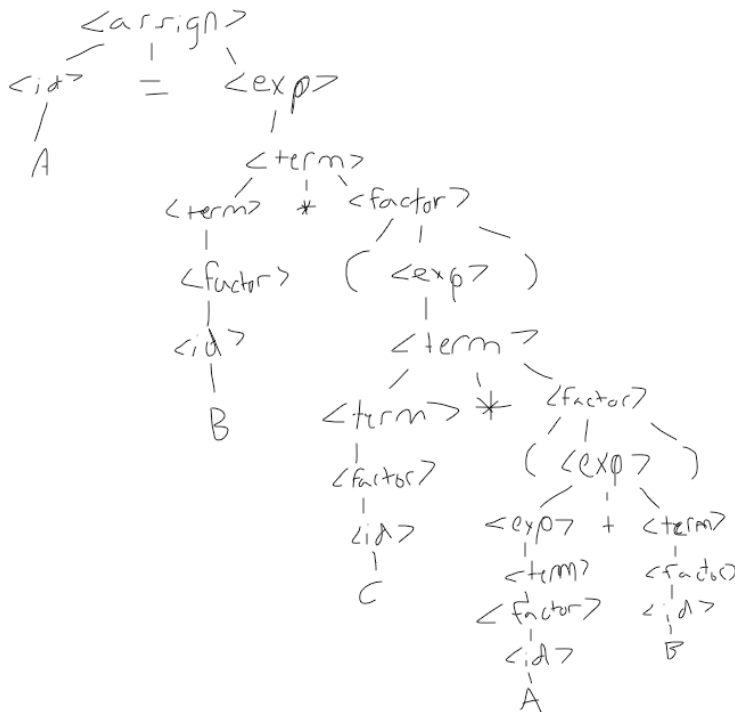 <assign>
<id> = <exp>
A <term>
<term> * <factor>
<factor> ( <exp> )
<id> <term>
B <term> * <factor>
<factor> ( <exp> )
<id> <exp> + <term>
C <term> <factor>
<factor> <id>
<id> B
A